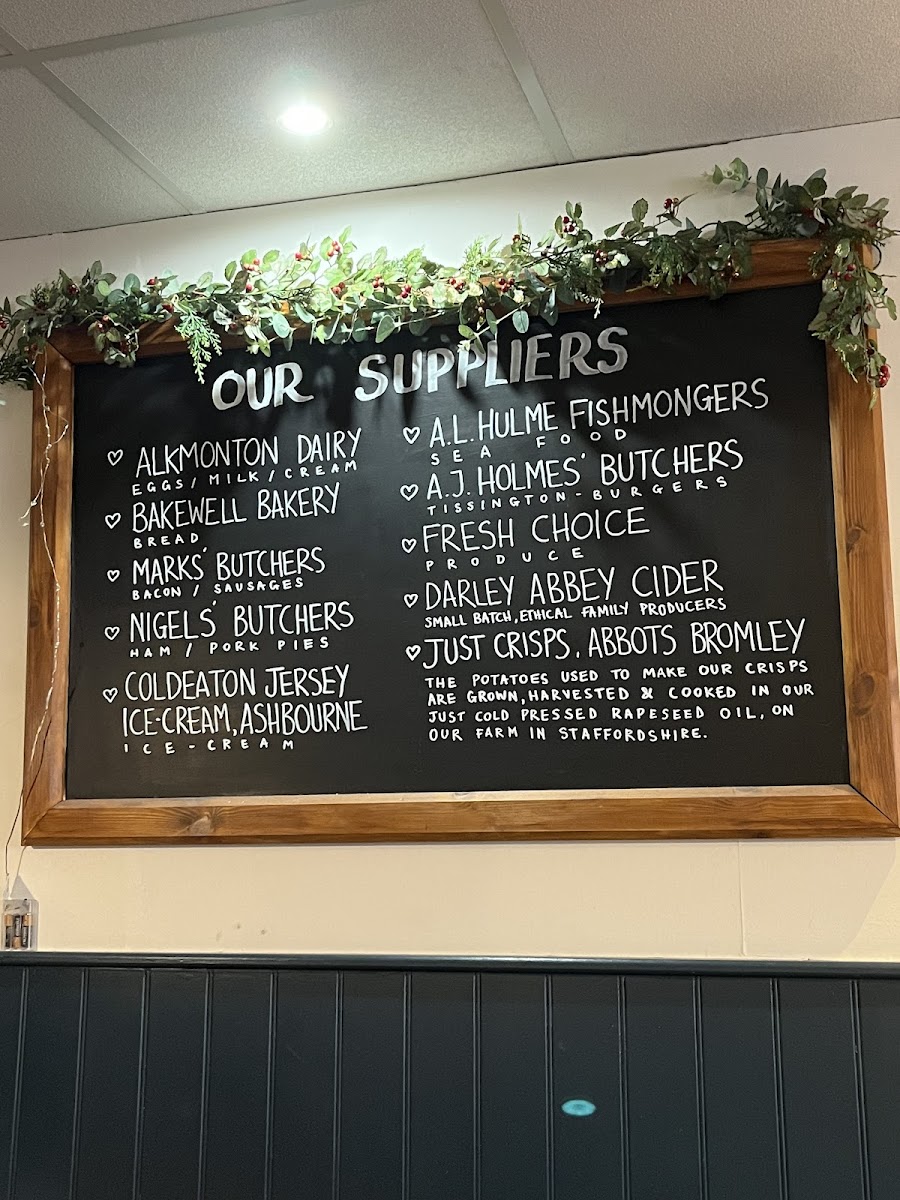 OUR SUPPLIERS
♡ ALKMONTON DAIRY
EGGS / MILK / CREAM
♡ BAKEWELL BAKERY
BREAD
♡ MARKS' BUTCHERS
BACON / SAUSAGES
♡ NIGELS' BUTCHERS
HAM / PORK PIES
♡ COLDEATON JERSEY
ICE-CREAM, ASHBOURNE
ICE-CREAM
♡ A.L. HULME FISHMONGERS
SEA FOOD
♡ A.J. HOLMES' BUTCHERS
TISSINGTON - BURGERS
♡ FRESH CHOICE
PRODUCE
♡ DARLEY ABBEY CIDER
SMALL BATCH, ETHICAL FAMILY PRODUCERS
♡ JUST CRISPS, ABBOTS BROMLEY
THE POTATOES USED TO MAKE OUR CRISPS
ARE GROWN, HARVESTED & COOKED IN OUR
JUST COLD PRESSED RAPESEED OIL, ON
OUR FARM IN STAFFORDSHIRE.